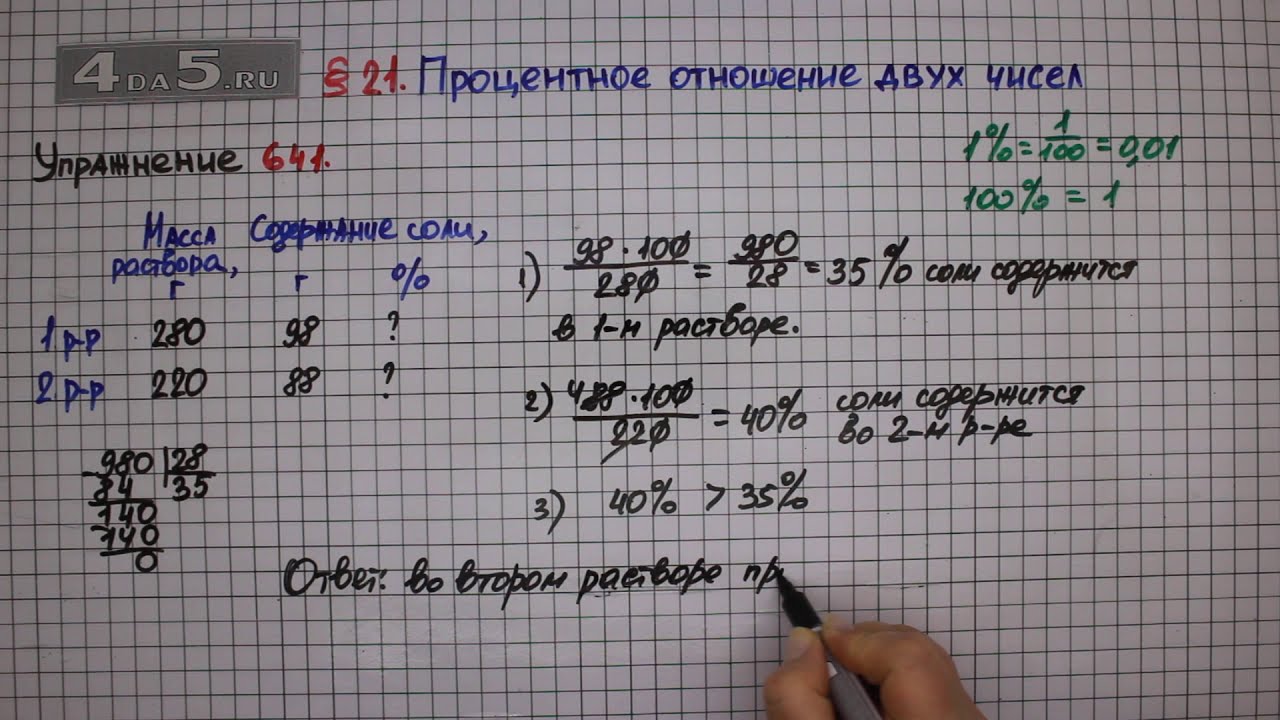 4DA5.RU
§ 21. Процентное отношение двух чисел
Упражнение 641.
1% = 1/100 = 0,01
100% = 1
Масса раствора, г
Содержание соли,
г %
1 р-р 280 98 ?
2 р-р 220 88 ?
980 | 28
84 35
140
140
0
1) 98 · 100 / 280 = 980 / 28 = 35% соли содержится
в 1-м растворе.
2) 4 88 · 100 / 220 = 40% соли содержится
во 2-м р-ре
3) 40% > 35%
Ответ: во втором растворе пр